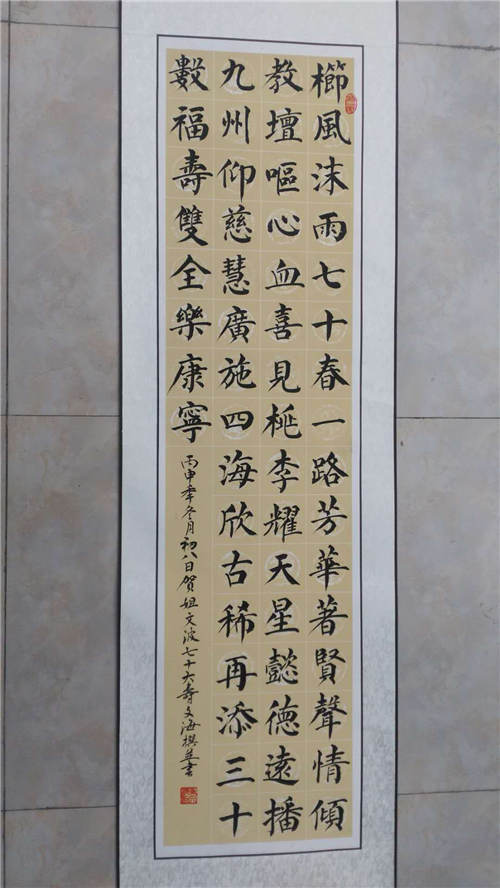 櫛風沐雨七十春一路芳華著賢聲情傾
教壇嘔心血喜見桃李耀天星懿德遠播
九州仰慈慧廣施四海欣古稀再添三十
數福壽雙全樂康寧
丙申年冬月初八日賀姐文波七十大寿文海撰並書